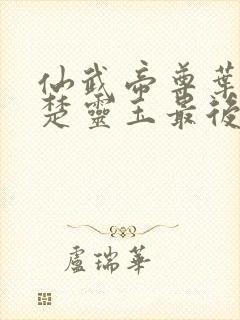 仙武帝尊葉
楚靈玉最後
盧瑞華